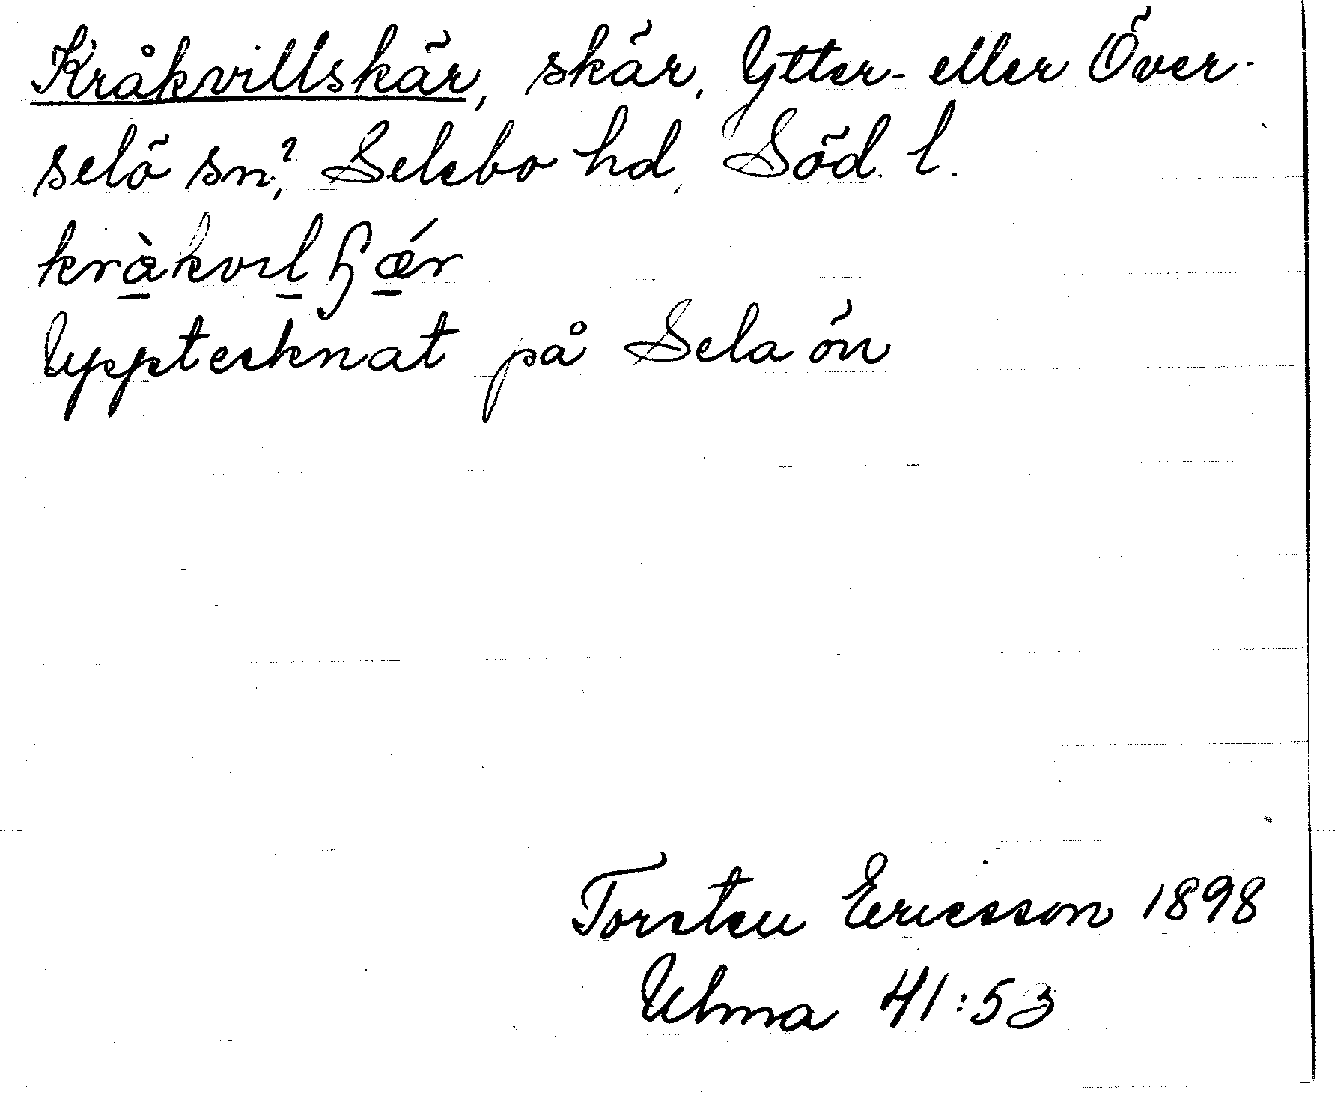 Kråkvillskär, skär, Ytter- eller Över-
selö sn?, Selebo hd, Söd. l.
kràkvılɧǽr
Uppteknat på Selaön
Torsten Ericsson 1898
Ulma 41:53